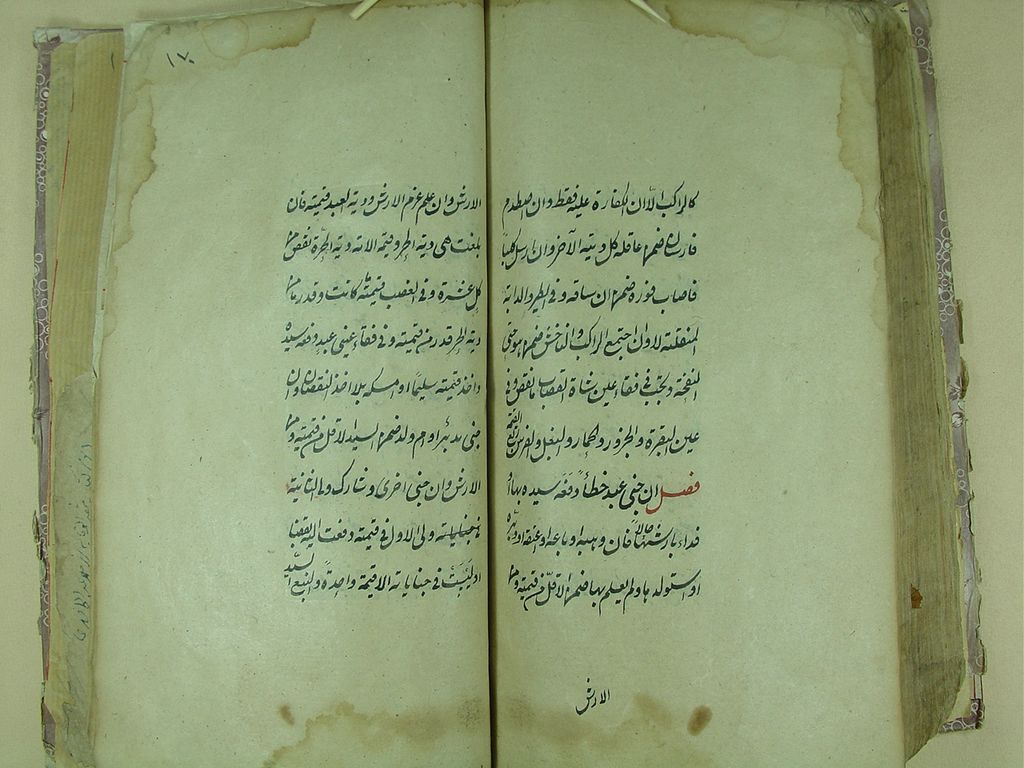 كالراكب الا ان الكفارة عليه فقط وان اصطدم
فارسان ضمنها عاقلة كل دية الآخر وان ارسل كلبا
فاصاب فوره ضمنها ان ساقه وفي الطير والدابة
المنفلتة لا وان اجتمع الراكب والناخس ضمنها هو حتى
النفحة ويجب في فقاء عين شاة القصاب ما نقص وفي
عين البقرة والجزور والحمار والبغل والفرس ربع القيمة
فصل ان جنى عبد خطأ دفعه سيده بها او
فداه بارشها حالا فان وهبه او باعه او اعتقه او دبره
او استولدها ولم يعلم بها ضمن الاقل من قيمته ومن
الارش
١٧٠
الارش وان علم غرم الارش ودية العبد قيمته فان
بلغت هي دية الحر وقيمة الامة دية الحرة نقص من
كل عشرة وفي الغصب قيمته ما كانت وقدر من
دية الحر قدر من قيمته وفي فقاء عيني عبد دفعه سيده
واخذ قيمته سليما او امسكه بلا اخذ النقصان وان
جنى مدبر او ام ولد ضمن السيد الاقل من قيمته ومن
الارش وان جنى اخرى وشارك ولي الثانية
ولي الاولى في قيمة دفعت اليه بقضا
اذ ليست في جناياته الا قيمة واحدة واتبع السيد